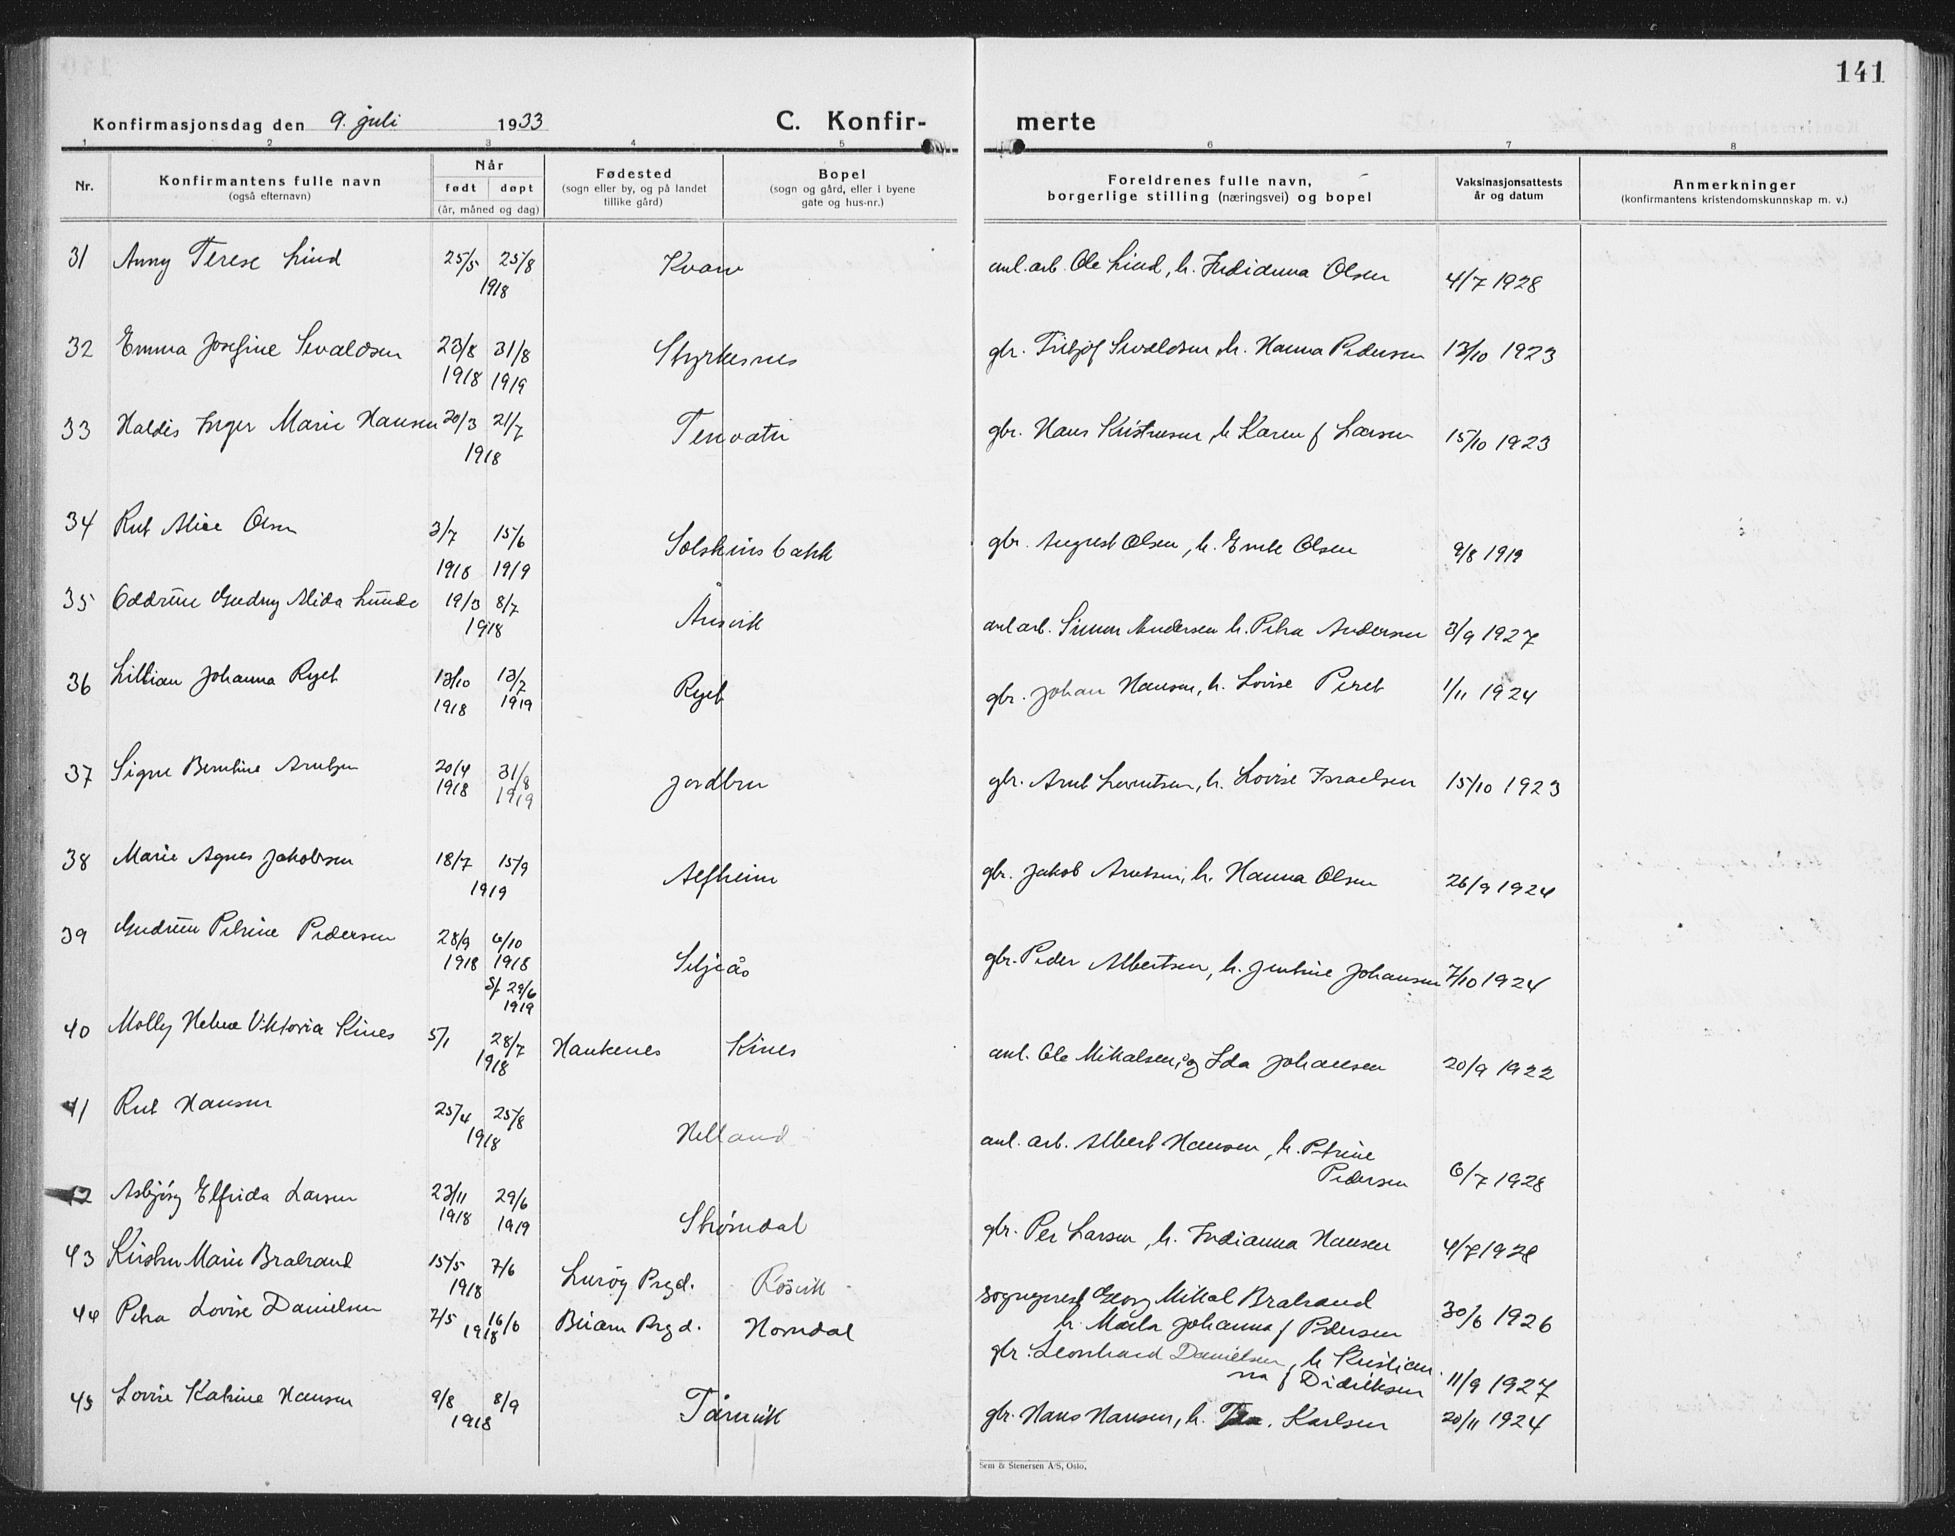 141
Konfirmasjonsdag den 9. juli 1933
C. Konfir- merte
1 2 3 4 5 6 7 8
Nr.
Konfirmantens fulle navn
(også efternavn)
Når
født døpt
(år, måned og dag)
Fødested
(sogn eller by, og på landet
tillike gård)
Bopel
(sogn og gård, eller i byene
gate og hus-nr.)
Foreldrenes fulle navn,
borgerlige stilling (næringsvei) og bopel
Vaksinasjonsattests
år og datum
Anmerkninger
(konfirmantens kristendomskunnskap m. v.)
31 Anny Terese Lind 25/5 25/8 Kvarv anl. arb. Ole Lind, h. Indianna Olsen 4/7 1928
1918
32 Emma Josefine Sivaldsen 23/8 31/8 Styrkesnes gbr. Fritjof Sivaldsen, h. Hanna Pedersen 13/10 1923
1918 1919
33 Haldis Inger Marie Hansen 20/3 21/7 Tennvatn gbr. Hans Kristensen, h. Karen f Larsen 15/10 1923
1918
34 Rut Alice Olsen 3/7 15/6 Solskinsbakk gbr. August Olsen, h. Olsen 9/8 1919
1918 1919
35 Oddrun Gudny Alida Lunde 19/3 8/7 Ånsvik anl. arb. Simon Andersen h. Petra Andersen 3/9 1927
1918
36 Lillian Johanna Ryet 13/10 13/7 Ryet gbr. Johan Hansen, h. Lovise 1/11 1924
1918 1919
37 Signe Berntine Arntsen 20/4 31/8 Jordbru gbr. Arnt Lorentsen, h. Lovise Israelsen 15/10 1923
1918 1919
38 Marie Agnes Jakobsen 18/7 15/9 Alfheim gbr. Jakob Arntsen, h. Hanna Olsen 26/9 1924
1919
39 Gudrun Petrine Pedersen 28/9 6/10 Seljeås gbr. Peder Albertsen, h. Jentine Johansen 7/10 1924
1918 1918
St. 29/6
1919
40 Molly Helene Viktoria Kines 5/1 28/7 Haukenes Kines anl. Ole Mikalsen, og Ida Johansen 20/9 1922
1918
41 Rut Hansen 25/4 25/8 Helland anl. arb. Albert Hansen, h. Petrine
1918 Pedersen 6/7 1928
42 Asbjørg Elfrida Larsen 23/11 29/6 Strømdal gbr. Per Larsen, h. Indianna Hansen 4/7 1928
1918 1919
43 Kirsten Marie Bratrand 15/5 7/6 Lurøy Prgd. Røsvik sogneprest Georg Mikal Bratrand 30/6 1926
1918 h. Johanna f Pedersen
44 Petra Lovise Danielsen 7/5 16/6 Beiarn Prgd. Horndal gbr. Leonhard Danielsen, h Kristian-
1918 na f Didriksen 11/9 1927
45 Lovise Katrine Hansen 9/8 8/9 Tårnvik gbr. Hans Hansen, h. Karlsen 20/11 1924
1918
Sem & Stenersen A/S, Oslo.